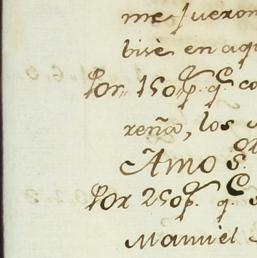 me fueron
bise en aqu
Por 150 p.s q.e co
reña, los
Amos.
Por 250 p.s q.e
Manuel